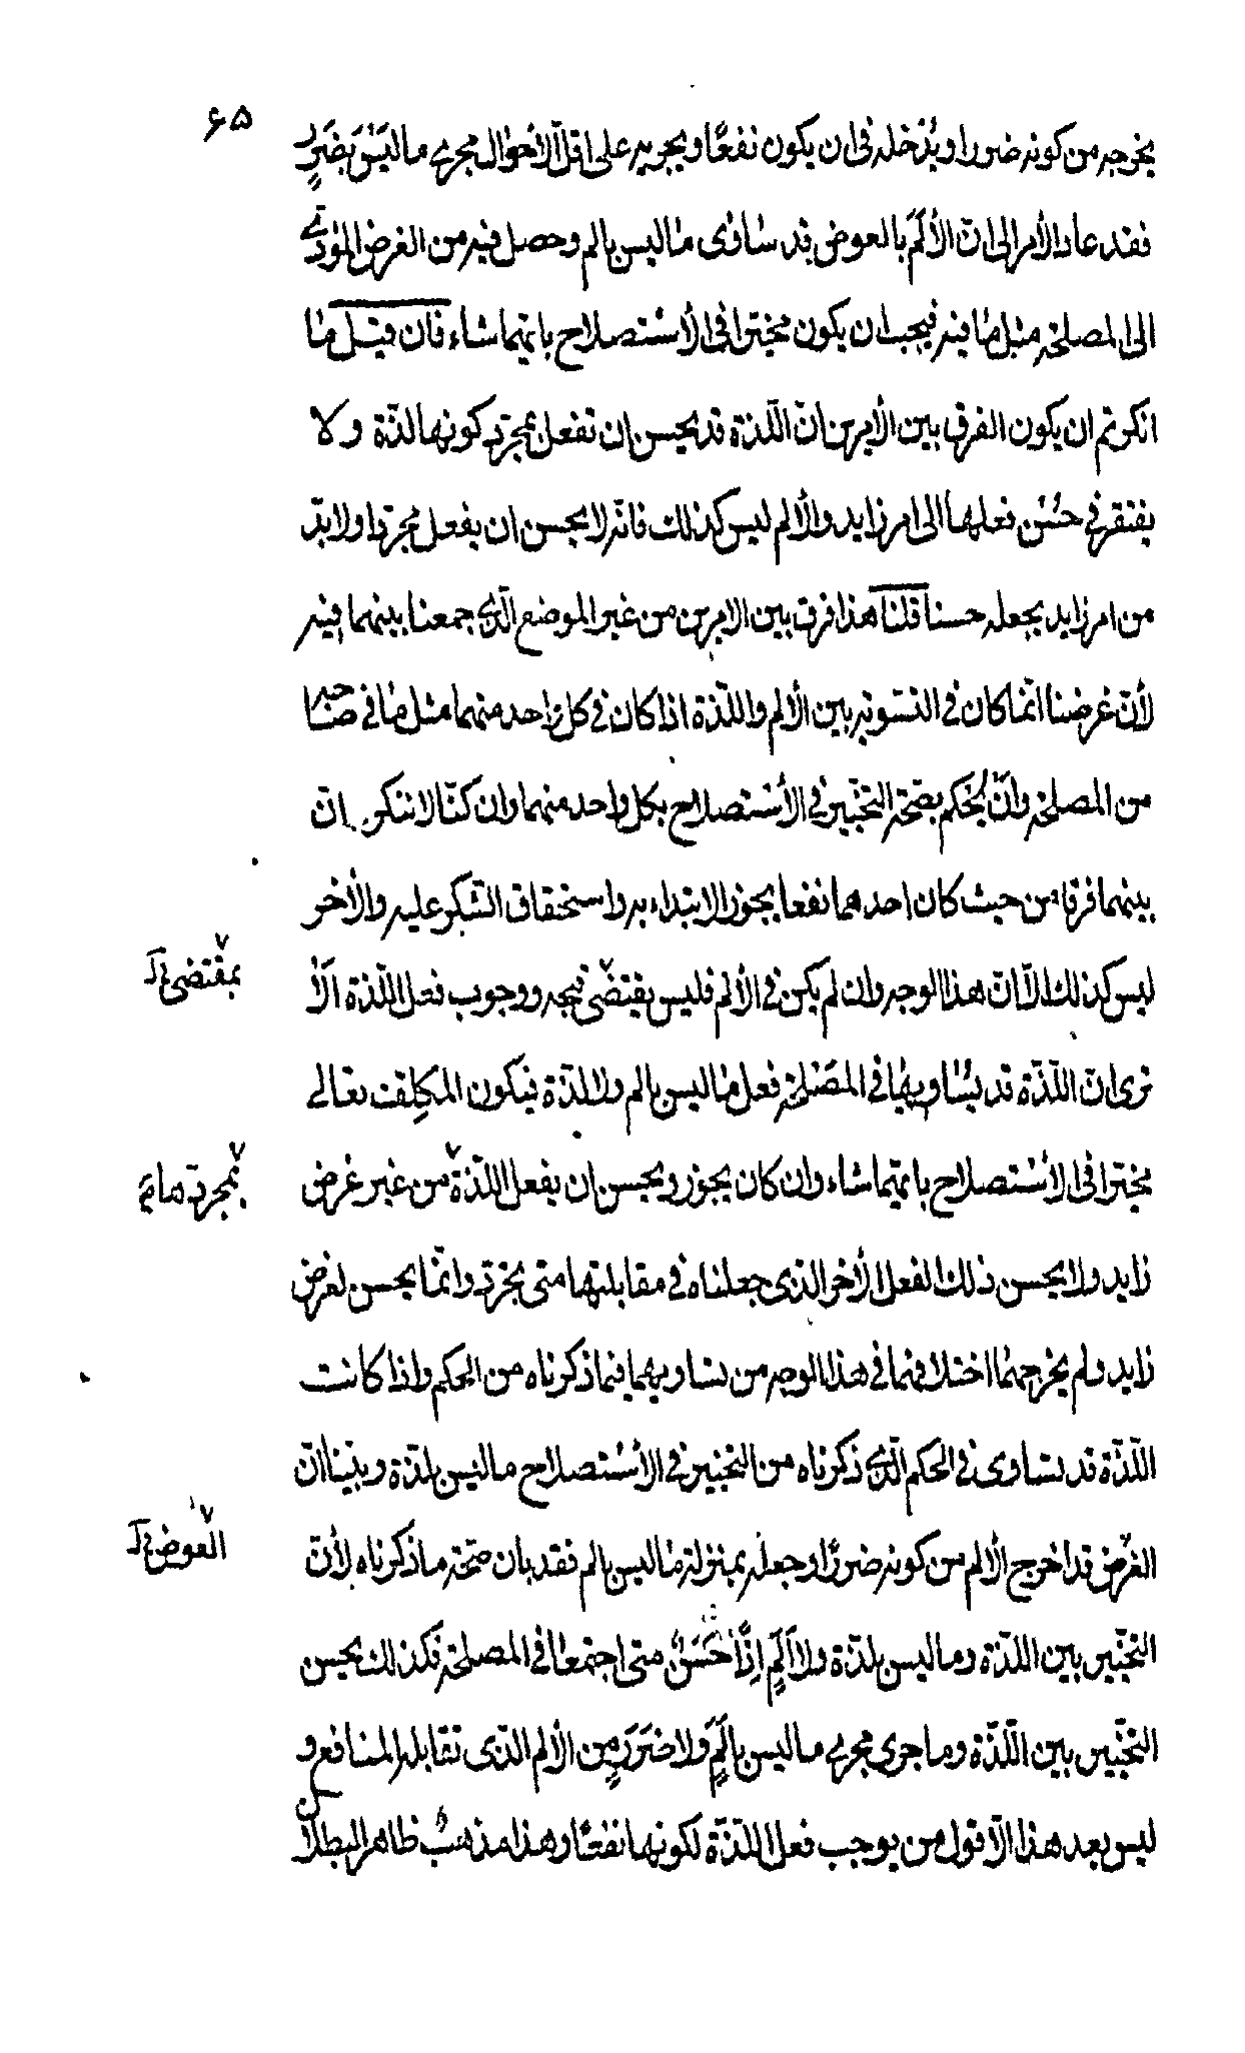 ۶۵
يخرجه من كونه ضررا ويُدْخله فى ان يكون نفعًا ويجريه على اقلّ الأحوال مجرى ما ليَسَ بضَررٍ
فقد عاد الأمر الى انّ الألمَ بالعوض قد ساوى ما ليس بالم وحصل فيه من الغرض المؤدّى
الى المصلحة مثل ما فيه فيجب ان يكون مخيّرا فى الأستصلاح بايّهما شاء فان قيل ما
انكرتم ان يكون الفرق بين الأمرين انّ اللّذة قد يحسن ان تفعل بمجرّد كونها لذّة ولا
يفتقر فى حُسْن فعلها الى امر زايد والألم ليس كذلك فانّه لا يحسن ان يفعل مجرّدا ولا بدّ
من امر زايد يجعله حسنا قلنا هذا فرق بين الامرين من غير الموضع الّذى جمعنا بينهما فيه
لأنّ غرضنا انّما كان فى التسوية بين الألم واللّذة اذا كان فى كل واحد منهما مثل ما فى صاحبه
من المصلحة وانْ يُحْكم بصّحة التخيّير فى الأستصلاح بكل واحد منهما وان كنّا لا ننكر انّ
بينهما فرقا من حيث كان احدهما نفعا يجوز الابتداء به واستحقاق الشّكر عليه والأخر
ليس كذلك الّا انّ هذا الوجه وان لم يكن فى الألم فليس يقتضى قبحه ووجوب فعل اللّذة الا
بمقتضى خ ل
ترى انّ اللّذّة قد يُساويها فى المصْلحة فعل ما ليس بالم ولا لذّة فيكون المكلِف تعالى
مخيّرا فى الأستصلاح بايّهما شاء وان كان يجوز ويحسن ان يفعل اللّذة من غير غرض
بمجردّها
زايد ولا يحسن ذلك الفعل الأخر الذى جعلناه فى مقابلتها متى تجرّد وانّما يحسن لغرض
زايد ولم يخرجهما اختلافهما فى هذا الوجه من تساويهما فيما ذكرناه من الحكم واذا كانت
اللّذّة قد تساوى فى الحكم الّذى ذكرناه من التخيير فى الأستصلاح ما ليس بلذّة وبيّنا انّ
الغرض قد اخرج الألم من كونه ضررًا وجعله بمنزلة ما ليس بالم فقد بان صحّة ما ذكرناه لأنّ
العوض خ ل
التخيّير بين اللّذّة وما ليس بلذّة ولا اَلَمٍ اِذَا حَسُنَ متى اجتمعا فى المصلحة فكذلك يحسن
التخيّير بين اللّذّة وما جرى مجرى ما ليس بالَمٍ ولا ضرَرَ من الألم الذّى تقابله المنافع و
ليس بعد هذا الّا قول من يوجب فعل اللّذّة لكونها نفعًا وهذا مذهبُ ظاهر البطلان